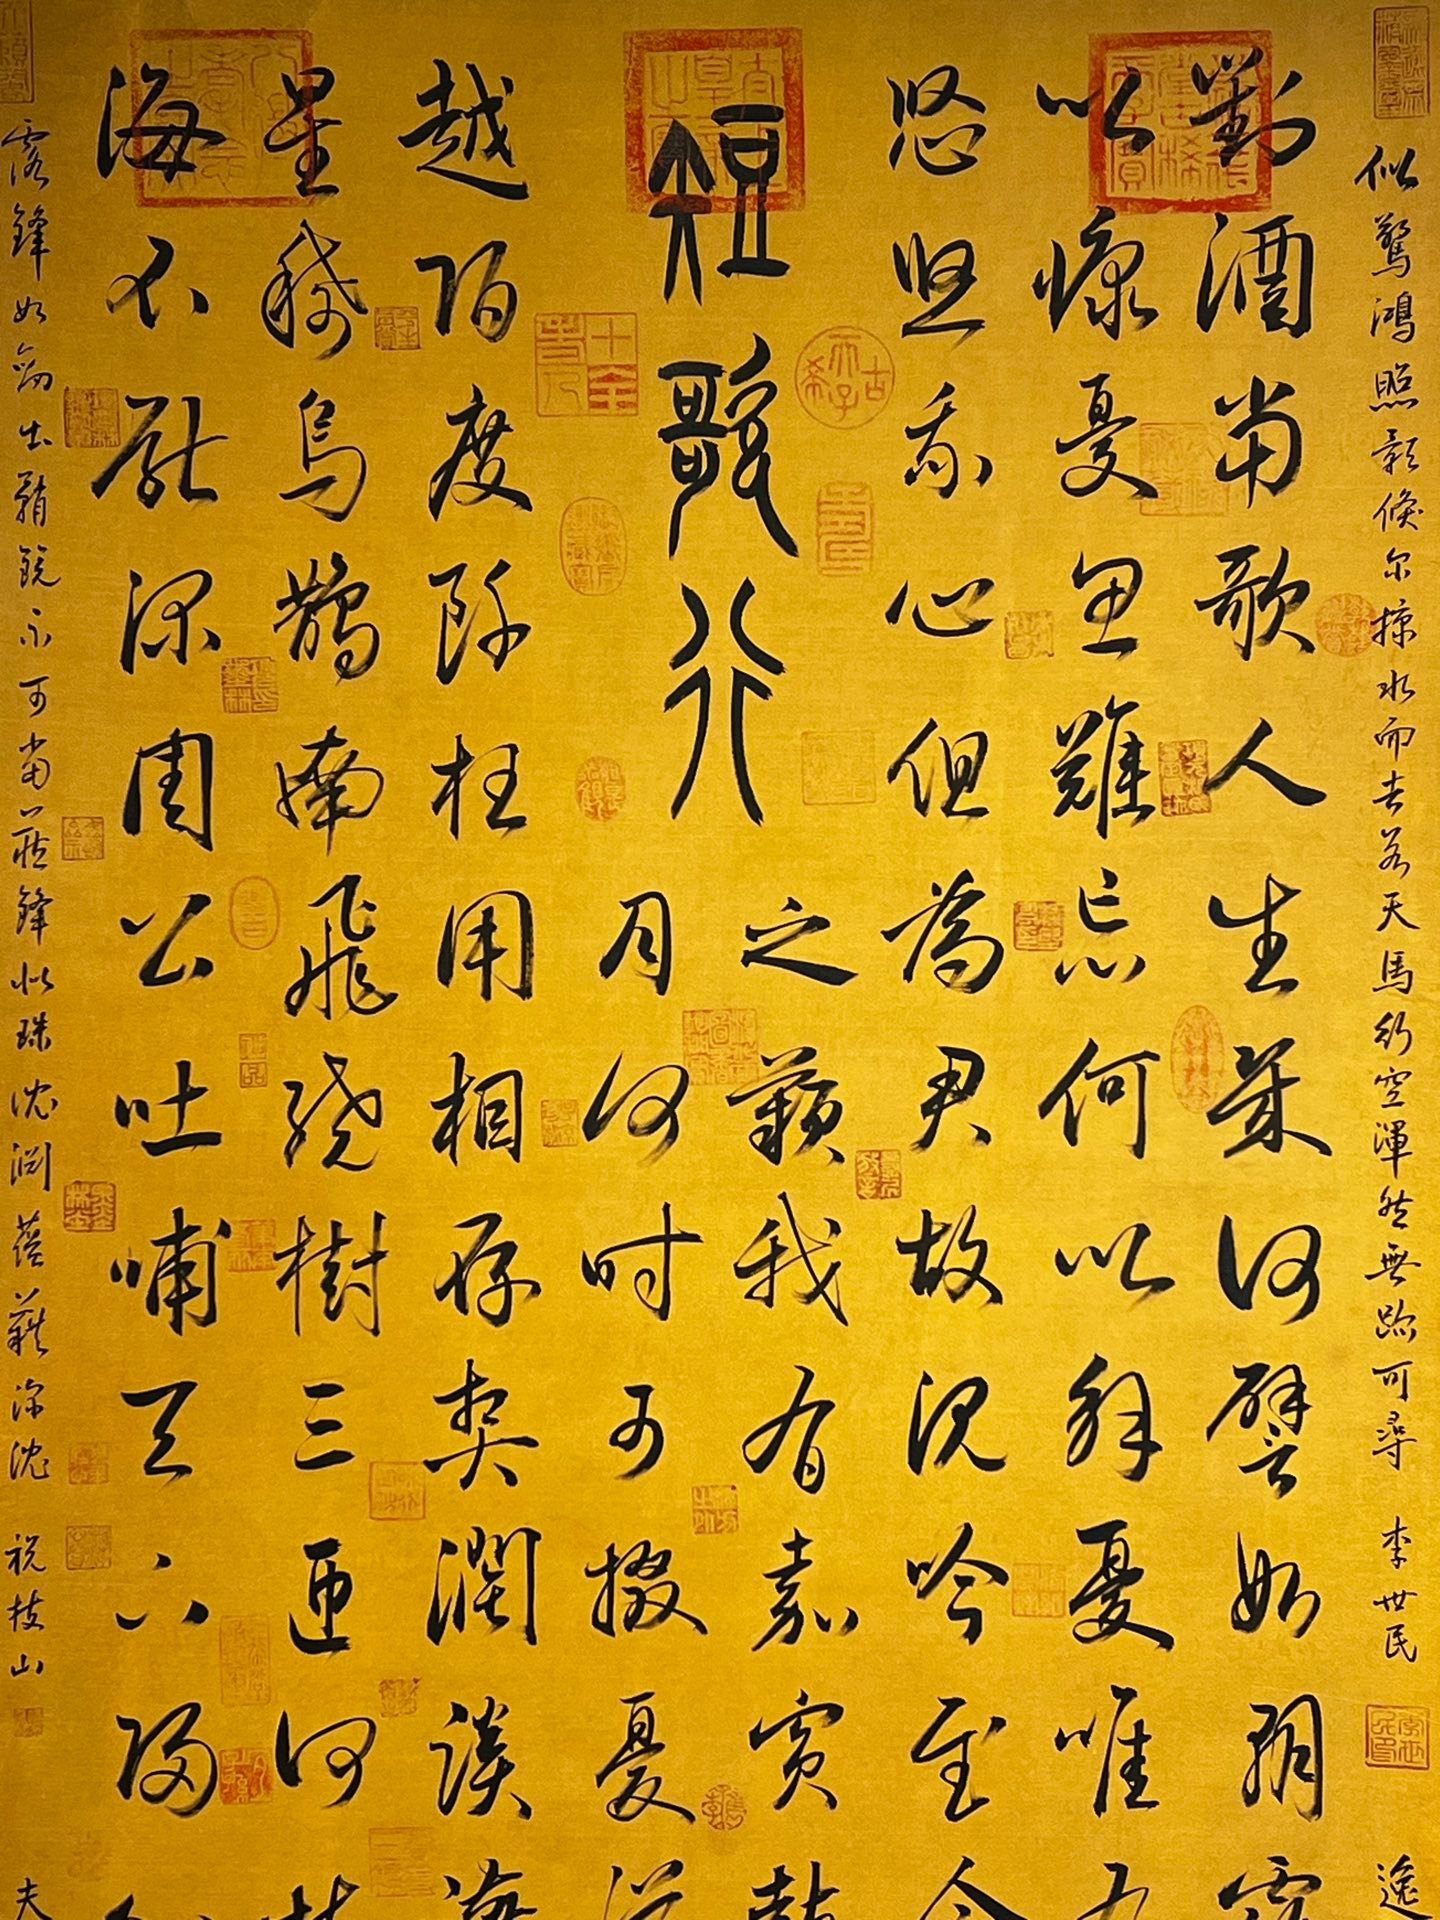 似驚鴻照影倏尔掠水而去若天馬行空渾然無跡可尋 李世民 逸
對酒當歌人生幾何譬如朝露
以慷憂思難忘何以解憂唯有
悠悠我心但為君故沉吟至今
短歌行
之蘋我有嘉賓鼓
月何時可掇憂從
越陌度阡枉用相存契濶談讌
星稀烏鵲南飛繞樹三匝何枝
海不厭深周公吐哺天下歸心
露鋒如劍出鞘銳不可當藏鋒似珠沈淵蘊藉深沈 祝枝山 夫
古稀天子
十全老人